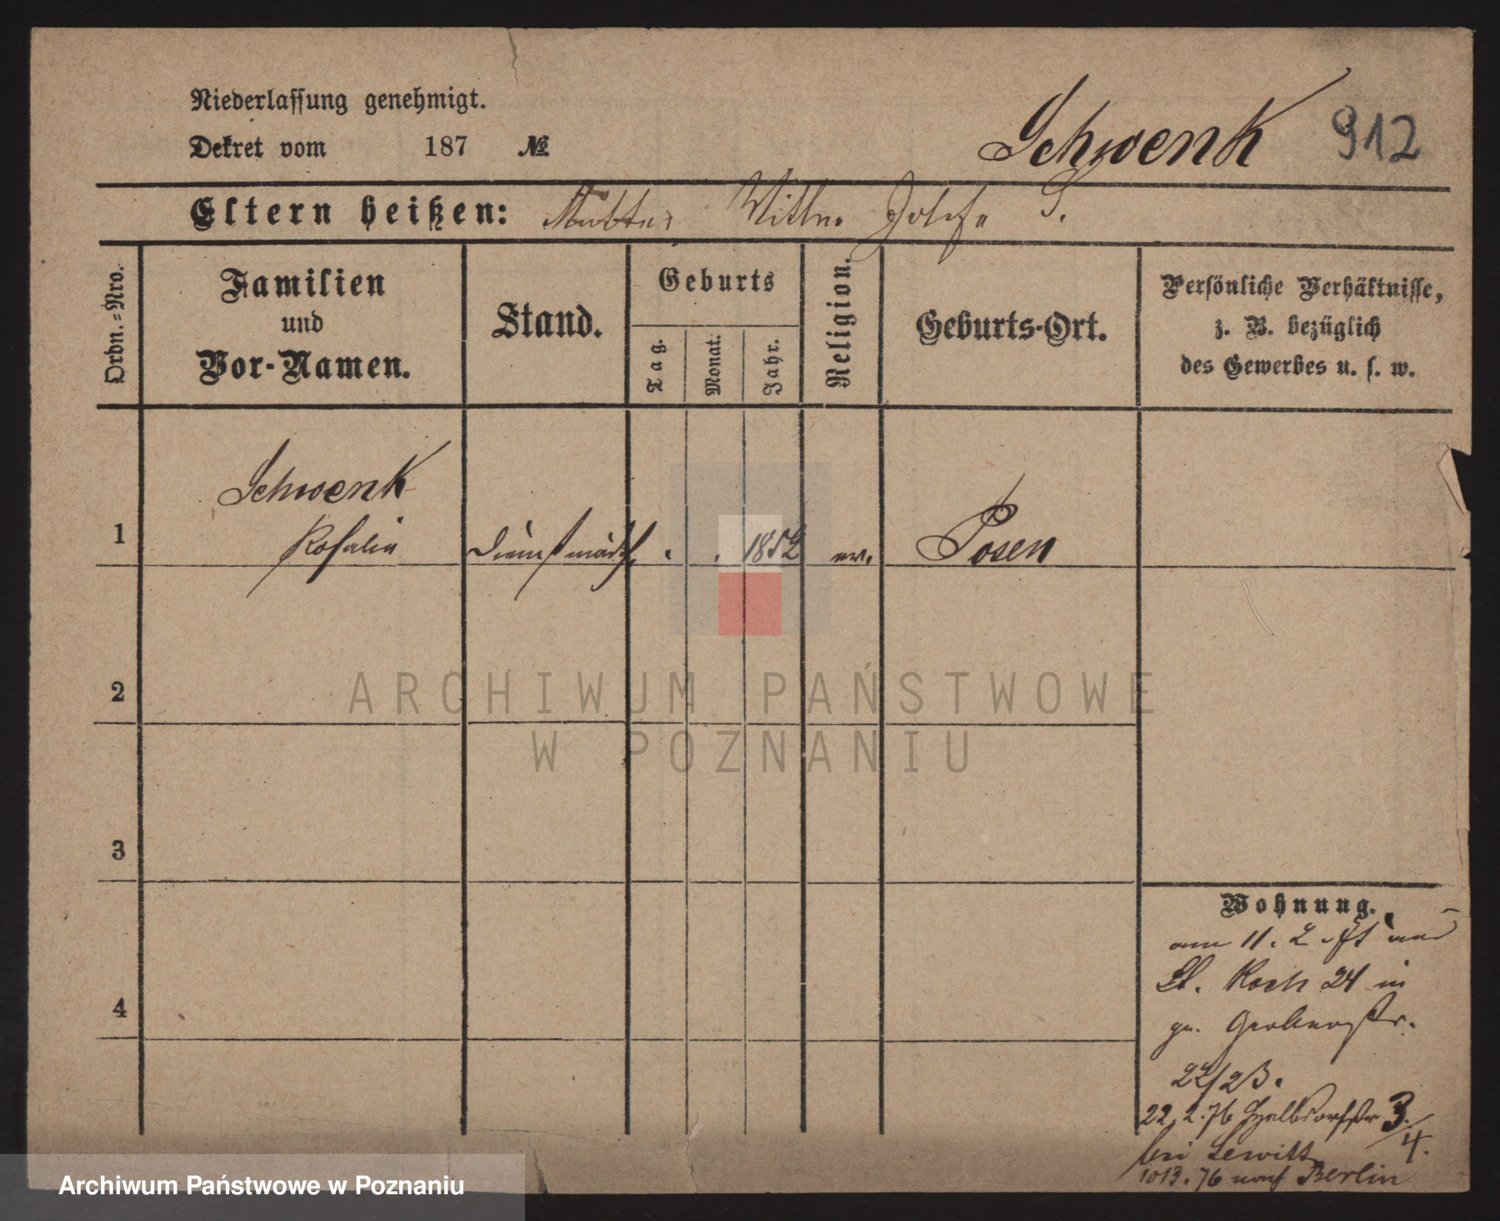 Niederlassung genehmigt.
Dekret vom 187 №
Schwenk 912
Eltern heißen: Mutter Wittwe Josefa S.
Ordn.-Nro.
Familien
und
Vor-Namen.
Stand.
Geburts
Tag.
Monat.
Jahr.
Religion.
Geburts-Ort.
Persönliche Verhältnisse,
z. B. bezüglich
des Gewerbes u. s. w.
Schwenk
1 Rosalie Dienstmädch. 1852 ev. Posen
2
3
4
Wohnung.
am 11. 2.
St. Roch 24 in
gr. Gerberstr.
22/23.
22.2.76 Halbdorfstr 3/4.
bei Lewitt
10/3.76 nach Berlin
ARCHIWUM PAŃSTWOWE
W POZNANIU
Archiwum Państwowe w Poznaniu